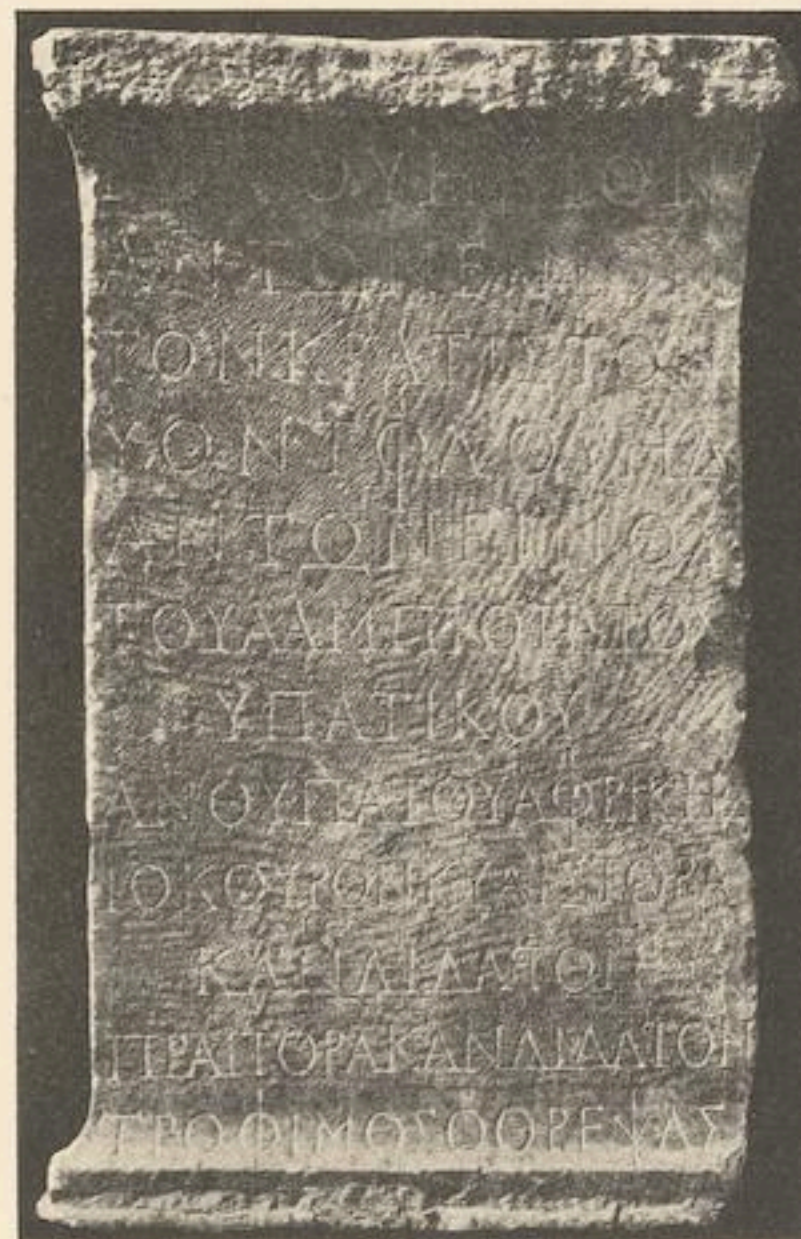 ΟΥΗΔΙΟΝ
ΤΟΝΚΡΑΤΙΣΤΟΝ
ΥΟΝΤΦΛΟΥΗΔ
ΑΝΤΩΝΕΙΝΟΥ
ΤΟΥΛΑΜΠΡΟΤΑΤΟΥ
ΥΠΑΤΙΚΟΥ
ΑΝΘΥΠΑΤΟΥΑΦΡΙΚΗΣ
ΙΟΚΟΥΡΟΝΚΥΑΙΣΤΟΡΑ
ΚΑΝΔΙΔΑΤΟΝ
ΠΡΑΙΤΟΡΑΚΑΝΔΙΔΑΤΟΝ
ΤΡΟΦΙΜΟΣΟΘΡΕΨΑΣ